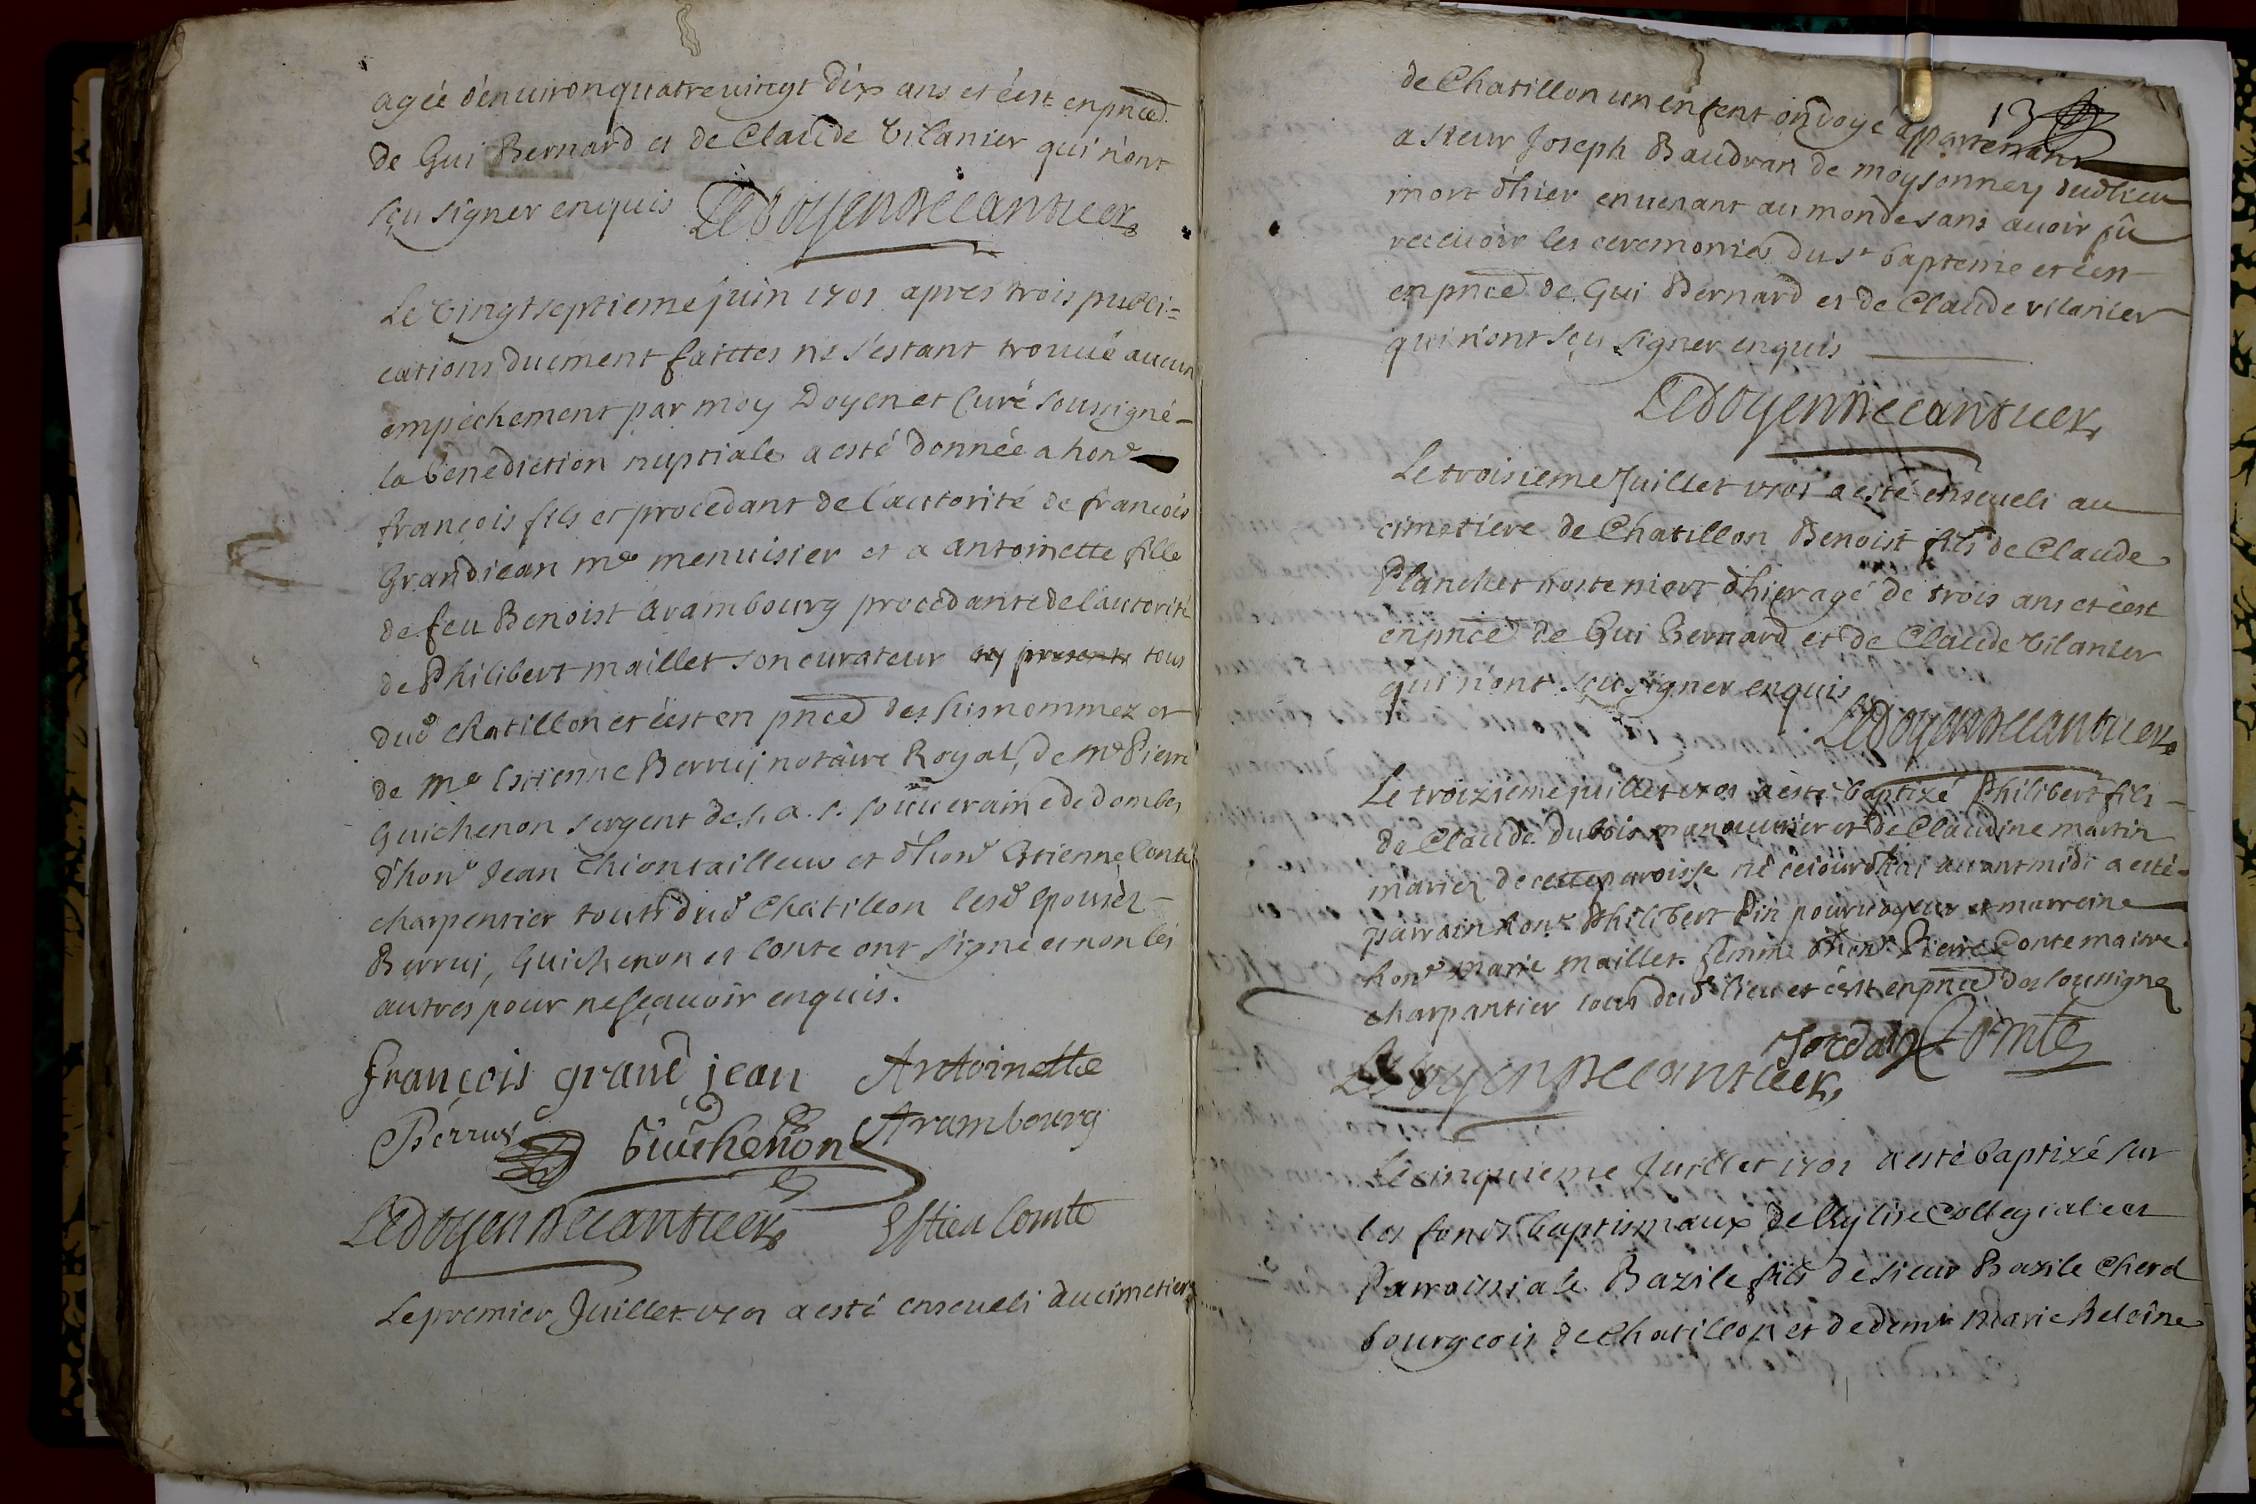 agée d'enuiron quatre vingt dix ans et c'est en pnce͠d
de Gui Bernard et de Claude Vilanier qui n'ont
sçu signer enquis Ledoyen Decantuer
Le Vingt septieme juin 1701 apres trois publi=
cations duement faittes ne s'estant trouué aucun
empêchement par moy Doyen et Curé soussigné
la benediction nuptiale a esté donnée a hon^e
françois fils et procedant de l'autorité de françois
Grandiean m^e menuisier et a Antoinette fille
de feu Benoist Arambourg procedante de l'autorité
de Philibert maillet son curateur cy presents tous
dud chatillon et c'est en pnce͠d des susnommez et
de M^e Estienne Berruy notaire Royal, de M^e Pierre
Guichenon sergent de s. a. s. souueraine de dombes
d'hon^e Jean Chion tailleur et d'hon^e Etienne Conte
charpentier touts dud Chatillon lesd Epousez
Berruy, Guichenon et Conte ont signé et non les
autres pour ne sçauoir enquis.
françois grand jean Antoinette
Berruy Guichenon Arambourg
Ledoyen Decantuer Estien Comte
Le premier Juillet 1701 a esté enseueli au cimetiere
13
de Chatillon un enfent ondoyé appartenant
a sieur Joseph Baudran de moysonney dud lieu
mort d'hier en uenant au monde sans auoir pû
receuoir les ceremonies du S^t bapteme et c'est
en pnce͠d de Gui Bernard et de Claude vilanier
qui n'ont sçu signer enquis
Ledoyen Decantuer
Le troisieme Juillet 1701 a esté enseueli au
cimetiere de Chatillon Benoist fils de Claude
Planchet hoste mort d'hier agé de trois ans et c'est
en pnce͠d de Gui Bernard et de Claude Vilanier
qui n'ont sçu signer enquis
Ledoyen Decantuer
Le troizieme juillet 1701 a esté baptizé Philibert fils
de Claude dubois manouurier et de Claudine martin
mariez de cette paroisse né ce iourd'hui auant midi a esté
parrain hon^e Philibert Pin pouruoyeur et marreine
hon^e marie maillet femme d'hon^e Pierre Conte maitre
charpantier tous dud lieu et c'est en pnce͠d des soussignez
Jordain Comte
Ledoyen Decantuer
Le cinquieme Juillet 1701 a esté baptizé sur
les fonds baptismaux de l'Eglise Collegiale et
Parroissiale Bazile fils de sieur Basile Cherel
bourgeois de Chatillon et de dem^e Marie